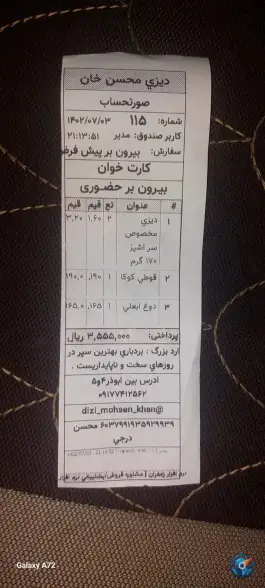 ديزي محسن خان
صورتحساب
شماره: ۱۱۵ ۱۴۰۲/۰۷/۰۳
کاربر صندوق: مدير 21:13:51
سفارش: بيرون بر پيش فرض
کارت خوان
بيرون بر حضوری
# عنوان تع قیم قیم
۱ ديزي ۲ ۱,۶۰ ۳,۲۰
مخصوص
سر اشپز
۱۷۰ گرم
۲ قوطي کوکا ۱ ۱۹۰, ۱۹۰,۰
۳ دوغ ابعلي ۱ ۱۶۵, ۱۶۵,۰
پرداختی: ۳,۵۵۵,۰۰۰ ریال
ارد بزرگ : بردباري بهترين سپر در
روزهاي سخت و ناپايداريست .
ادرس بين ابوذر۴و۵
۰۹۱۷۷۴۱۲۵۶۲
dizi_mohsen_khan@
۶۰۳۷۹۹۱۹۳۵۹۲۹۹۳۹ محسن
درجي
نرم افزار زعفران | مشاوره فروش/پشتيباني نرم افزار
Galaxy A72